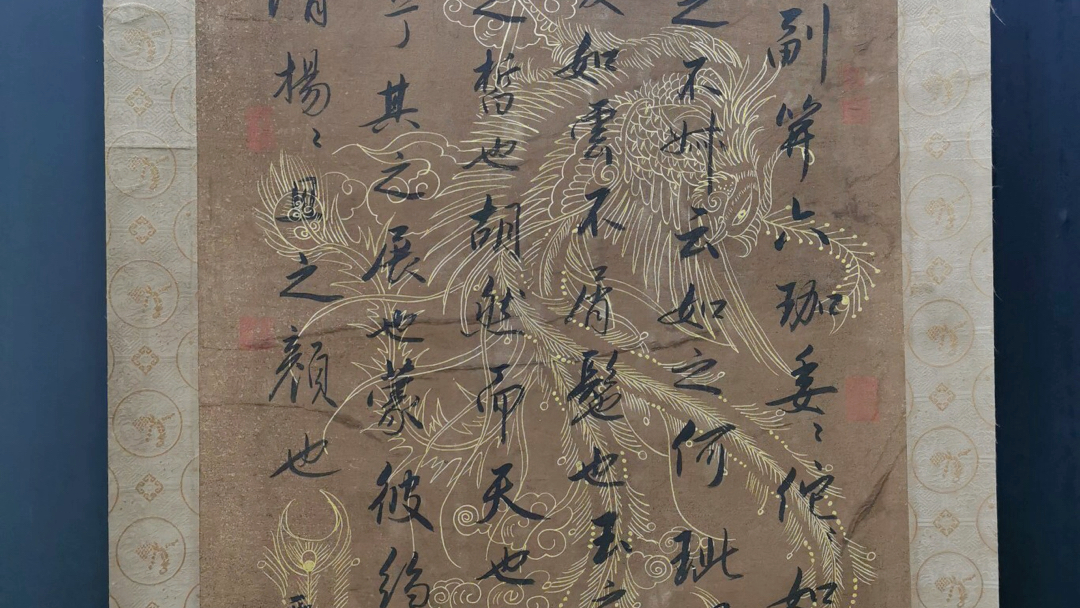 副笄六珈委〻佗〻如
之不淑云如之何玼
如雲不屑髢也玉之
之皙也胡然而天也
兮其之展也蒙彼縐
清揚〻且之顏也